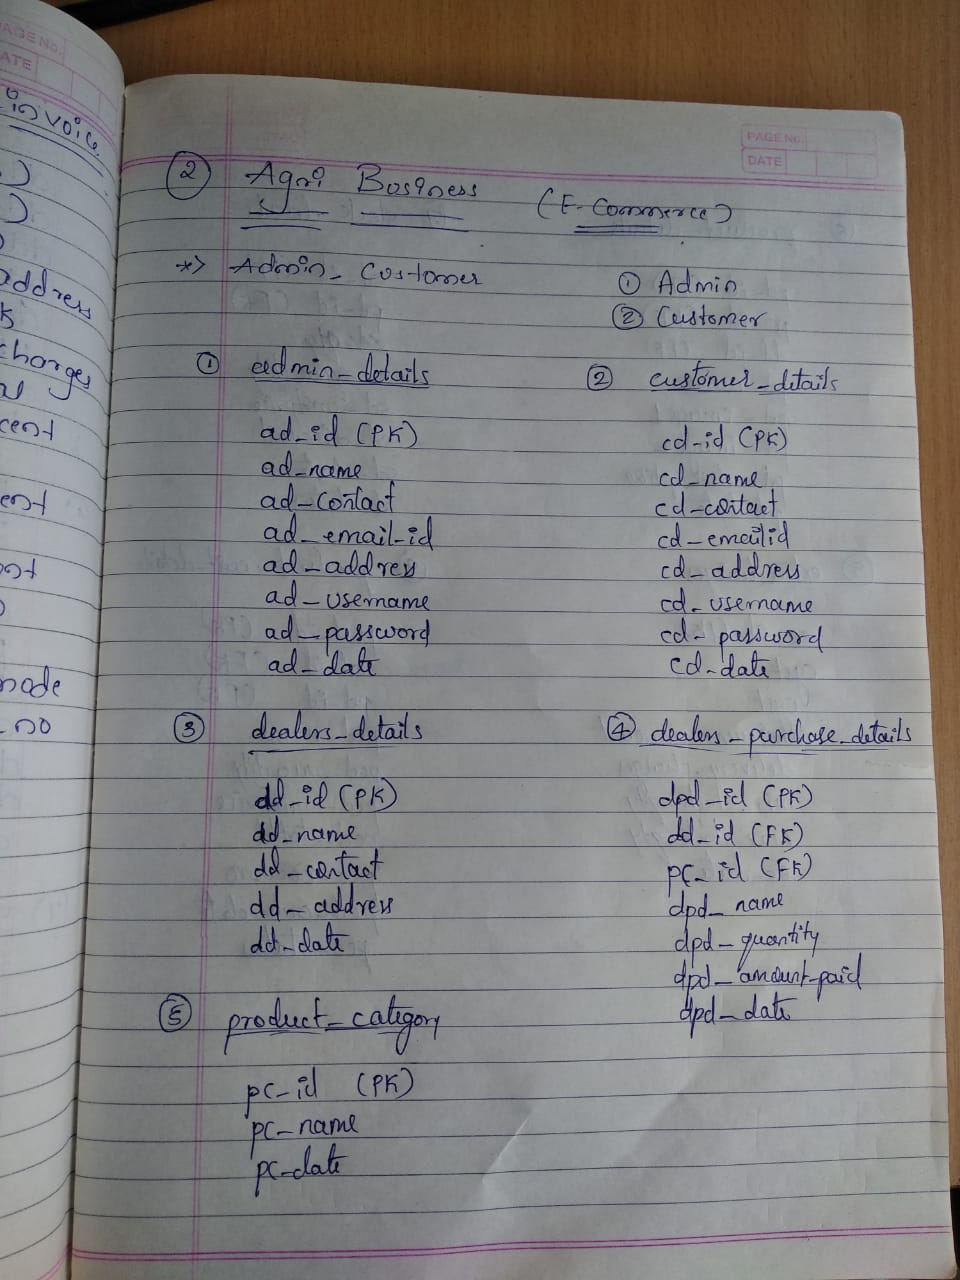 PAGE No.
DATE
invoice
)
)
address
k
charges
cent
ent
nt
mode
_no
PAGE No.
DATE
2 Agri Business (E-Commerce)
*> Admin - Customer
1 Admin
2 Customer
1 admin_details
ad_id (PK)
ad_name
ad_contact
ad_email_id
ad_address
ad_username
ad_password
ad_date
2 customer_details
cd_id (PK)
cd_name
cd_contact
cd_emailid
cd_address
cd_username
cd_password
cd_date
3 dealers_details
dd_id (PK)
dd_name
dd_contact
dd_address
dd_date
4 dealers_purchase_details
dpd_id (PK)
dd_id (FK)
pc_id (FK)
dpd_name
dpd_quantity
dpd_amount_paid
dpd_date
5 product_category
pc_id (PK)
pc_name
pc_date